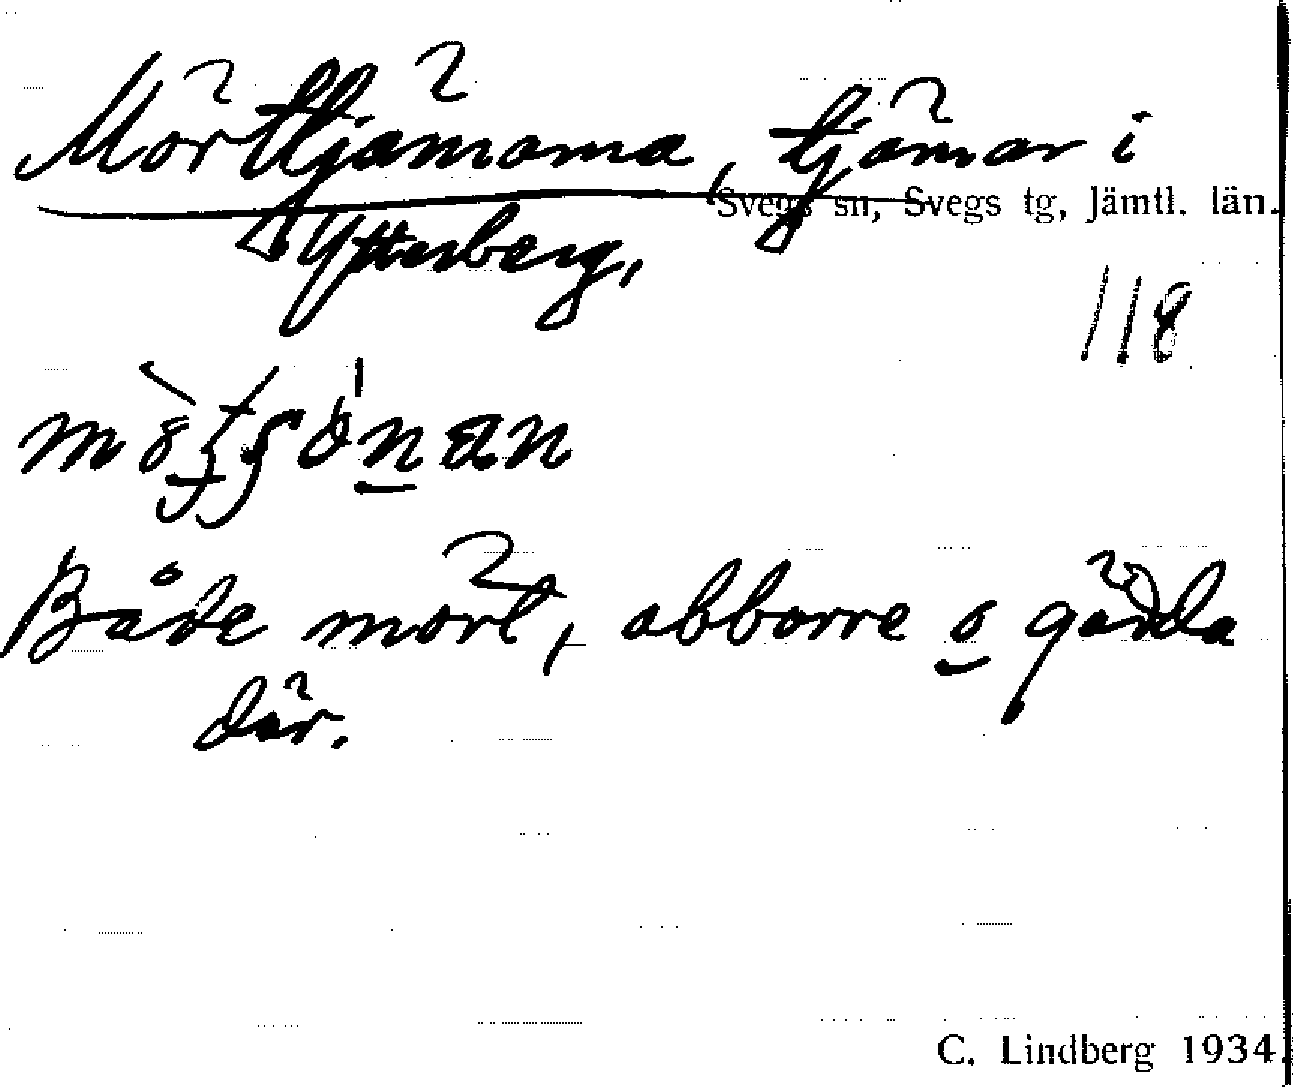 Mörttjärnarna, tjärnar i
Svegs sn, Svegs tg, Jämtl. län.
Ytterberg,
118
Både mört, abborre o gädda
där.
C. Lindberg 1934.